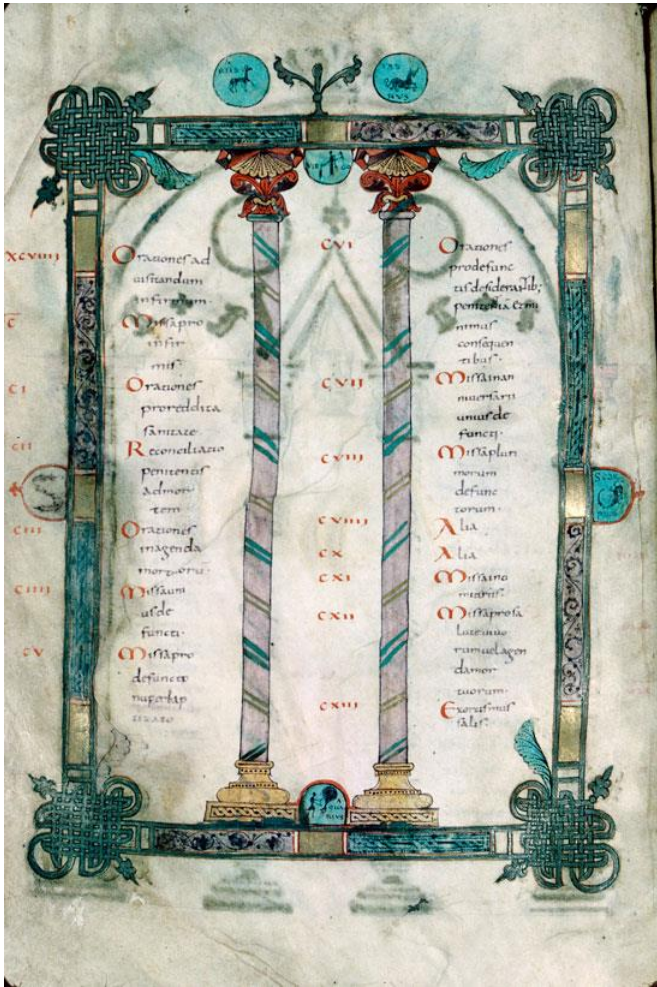 XCVIIII
Orationes ad
uisitandum
infirmum·
C
Missa pro
infir
mis·
CI
Orationes
pro reddita
sanitate·
CII
Reconciliatio
penitentis
ad mor
tem
CIII
Orationes
in agenda
mortuorū·
CIIII
Missa uni
us de
functi·
CV
Missa pro
defuncto
nuper bap
tizato
CVI
Orationes
pro defunc
tis desiderantib;
penitentiā et mi
nimus
consequen
tibus·
CVII
Missa in an
niuersarii
unius de
functi·
CVIII
Missa pluri
morum
defunc
torum·
CVIIII
Alia
CX
Alia·
CXI
Missa in ci
miteriis·
CXII
Missa pro sa
lute uiuo
rum uel agen
da mor
tuorum·
CXIII
Exorcismus
salis·
A
QUA
RIUS